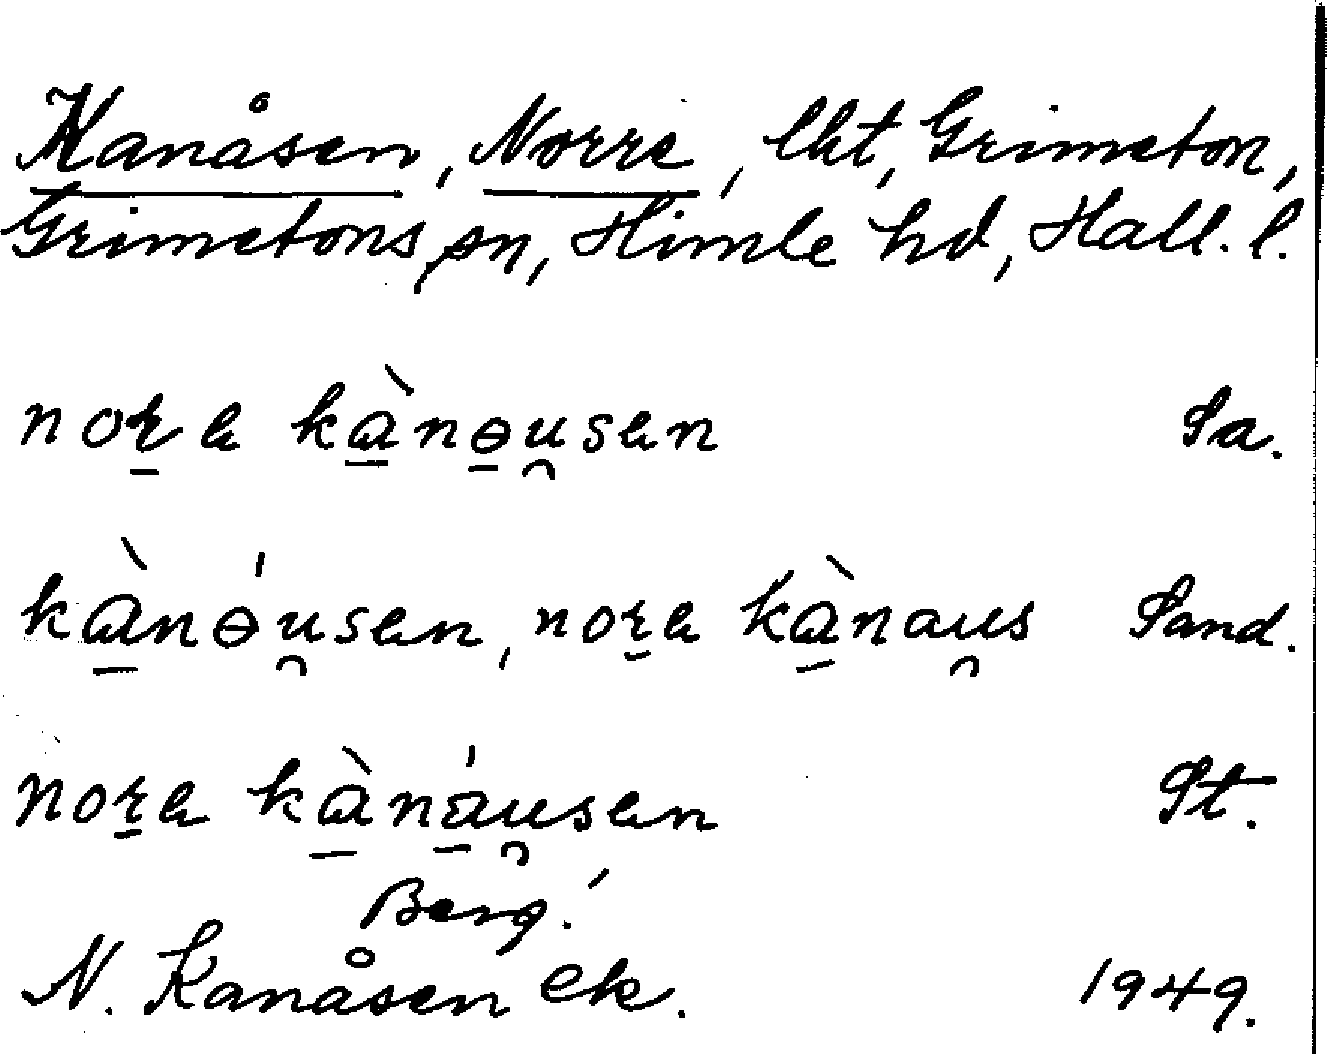 Kanåsen, Norre, lht, Grimeton,
Grimetons sn, Himle hd, Hall. l.
nor̠a kà̠nɵ̠u̯san Sa.
kà̠nɵ́u̯san, nor̠a kà̠nau̯s Sand.
nor̠a kà̠ná̠u̯san St.
Berg!
N. Kanåsen ek. 1949.